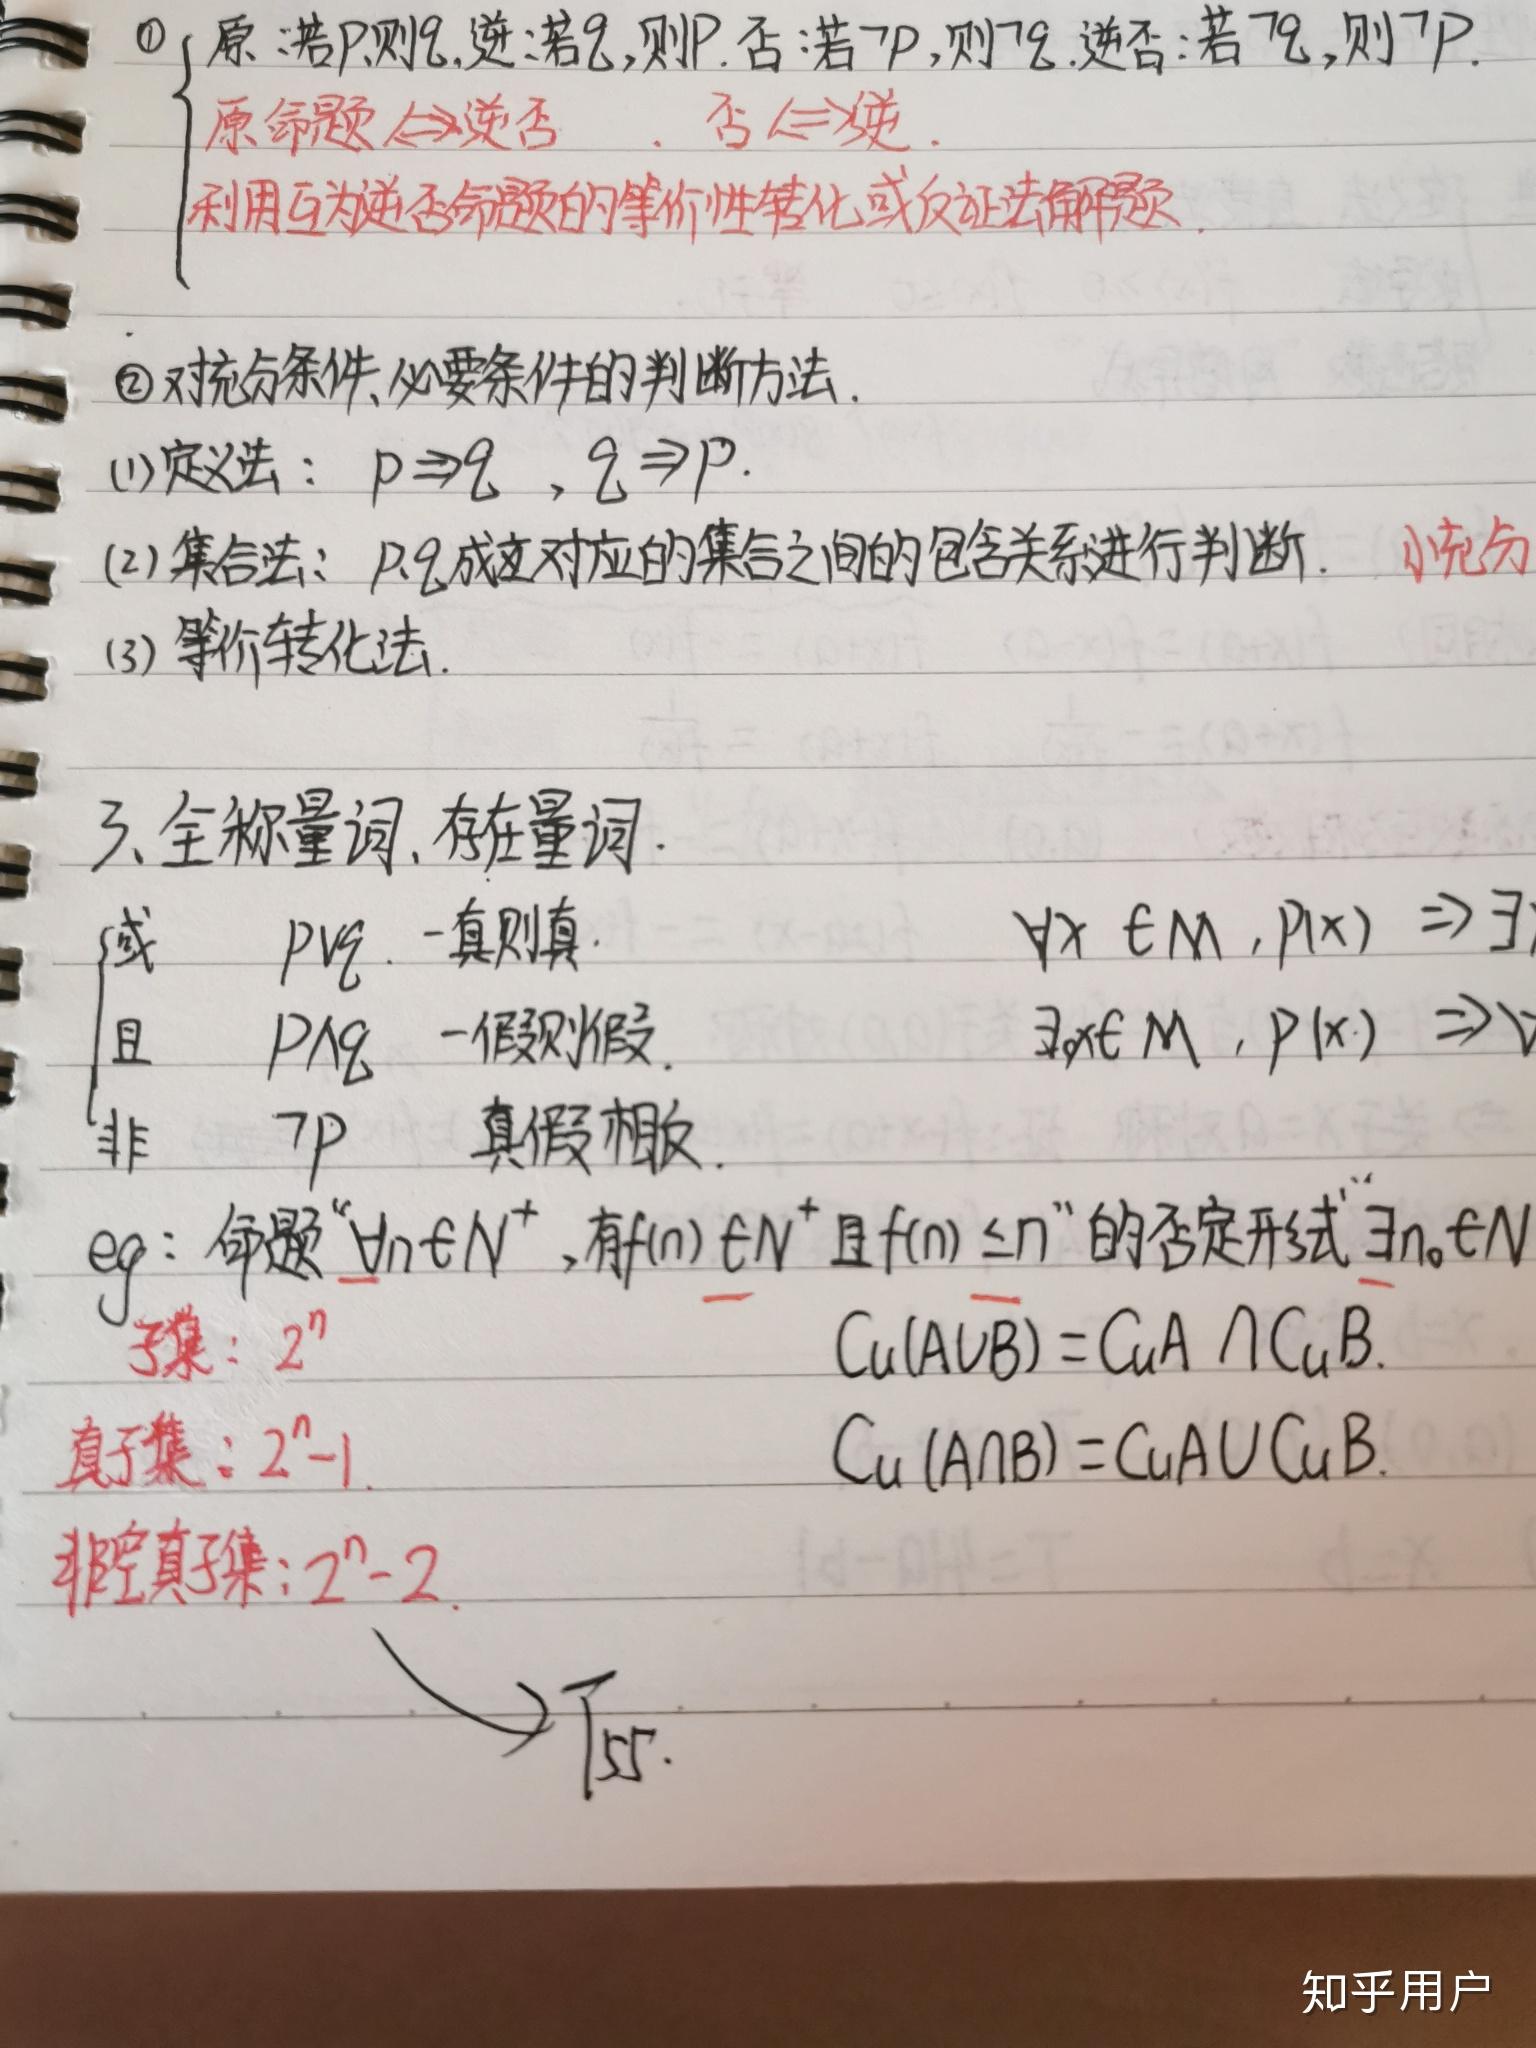 ① 原:若p,则q.逆:若q,则p.否:若¬p,则¬q.逆否:若¬q,则¬p.
原命题⇔逆否 . 否⇔逆.
利用互为逆否命题的等价性转化或反证法解题.
②对充分条件、必要条件的判断方法.
(1)定义法: p⇒q , q⇒p.
(2)集合法: p、q成立对应的集合之间的包含关系进行判断. 小充分
(3)等价转化法.
3、全称量词、存在量词.
或 p∨q. 一真则真. ∀x∈M,p(x) ⇒∃
且 p∧q 一假则假. ∃x₀∈M,p(x₀) ⇒∀
非 ¬p 真假相反.
eg:命题“∀n∈N⁺,有f(n)∈N⁺且f(n)≤n”的否定形式“∃n₀∈N
子集:2ⁿ Cu(A∪B)=CuA∩CuB.
真子集:2ⁿ-1. Cu(A∩B)=CuA∪CuB.
非空真子集:2ⁿ-2.
T55.
知乎用户